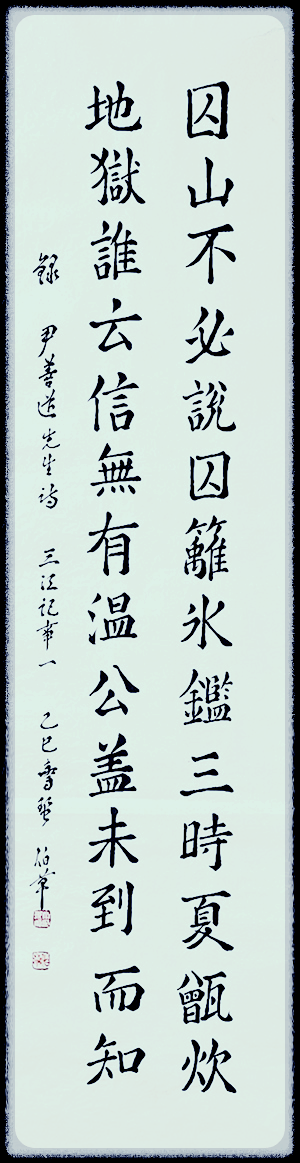 囚山不必說囚籬氷鑑三時夏甑炊
地獄誰云信無有溫公盖未到而知
錄 尹善道先生詩 三江記事一 乙巳